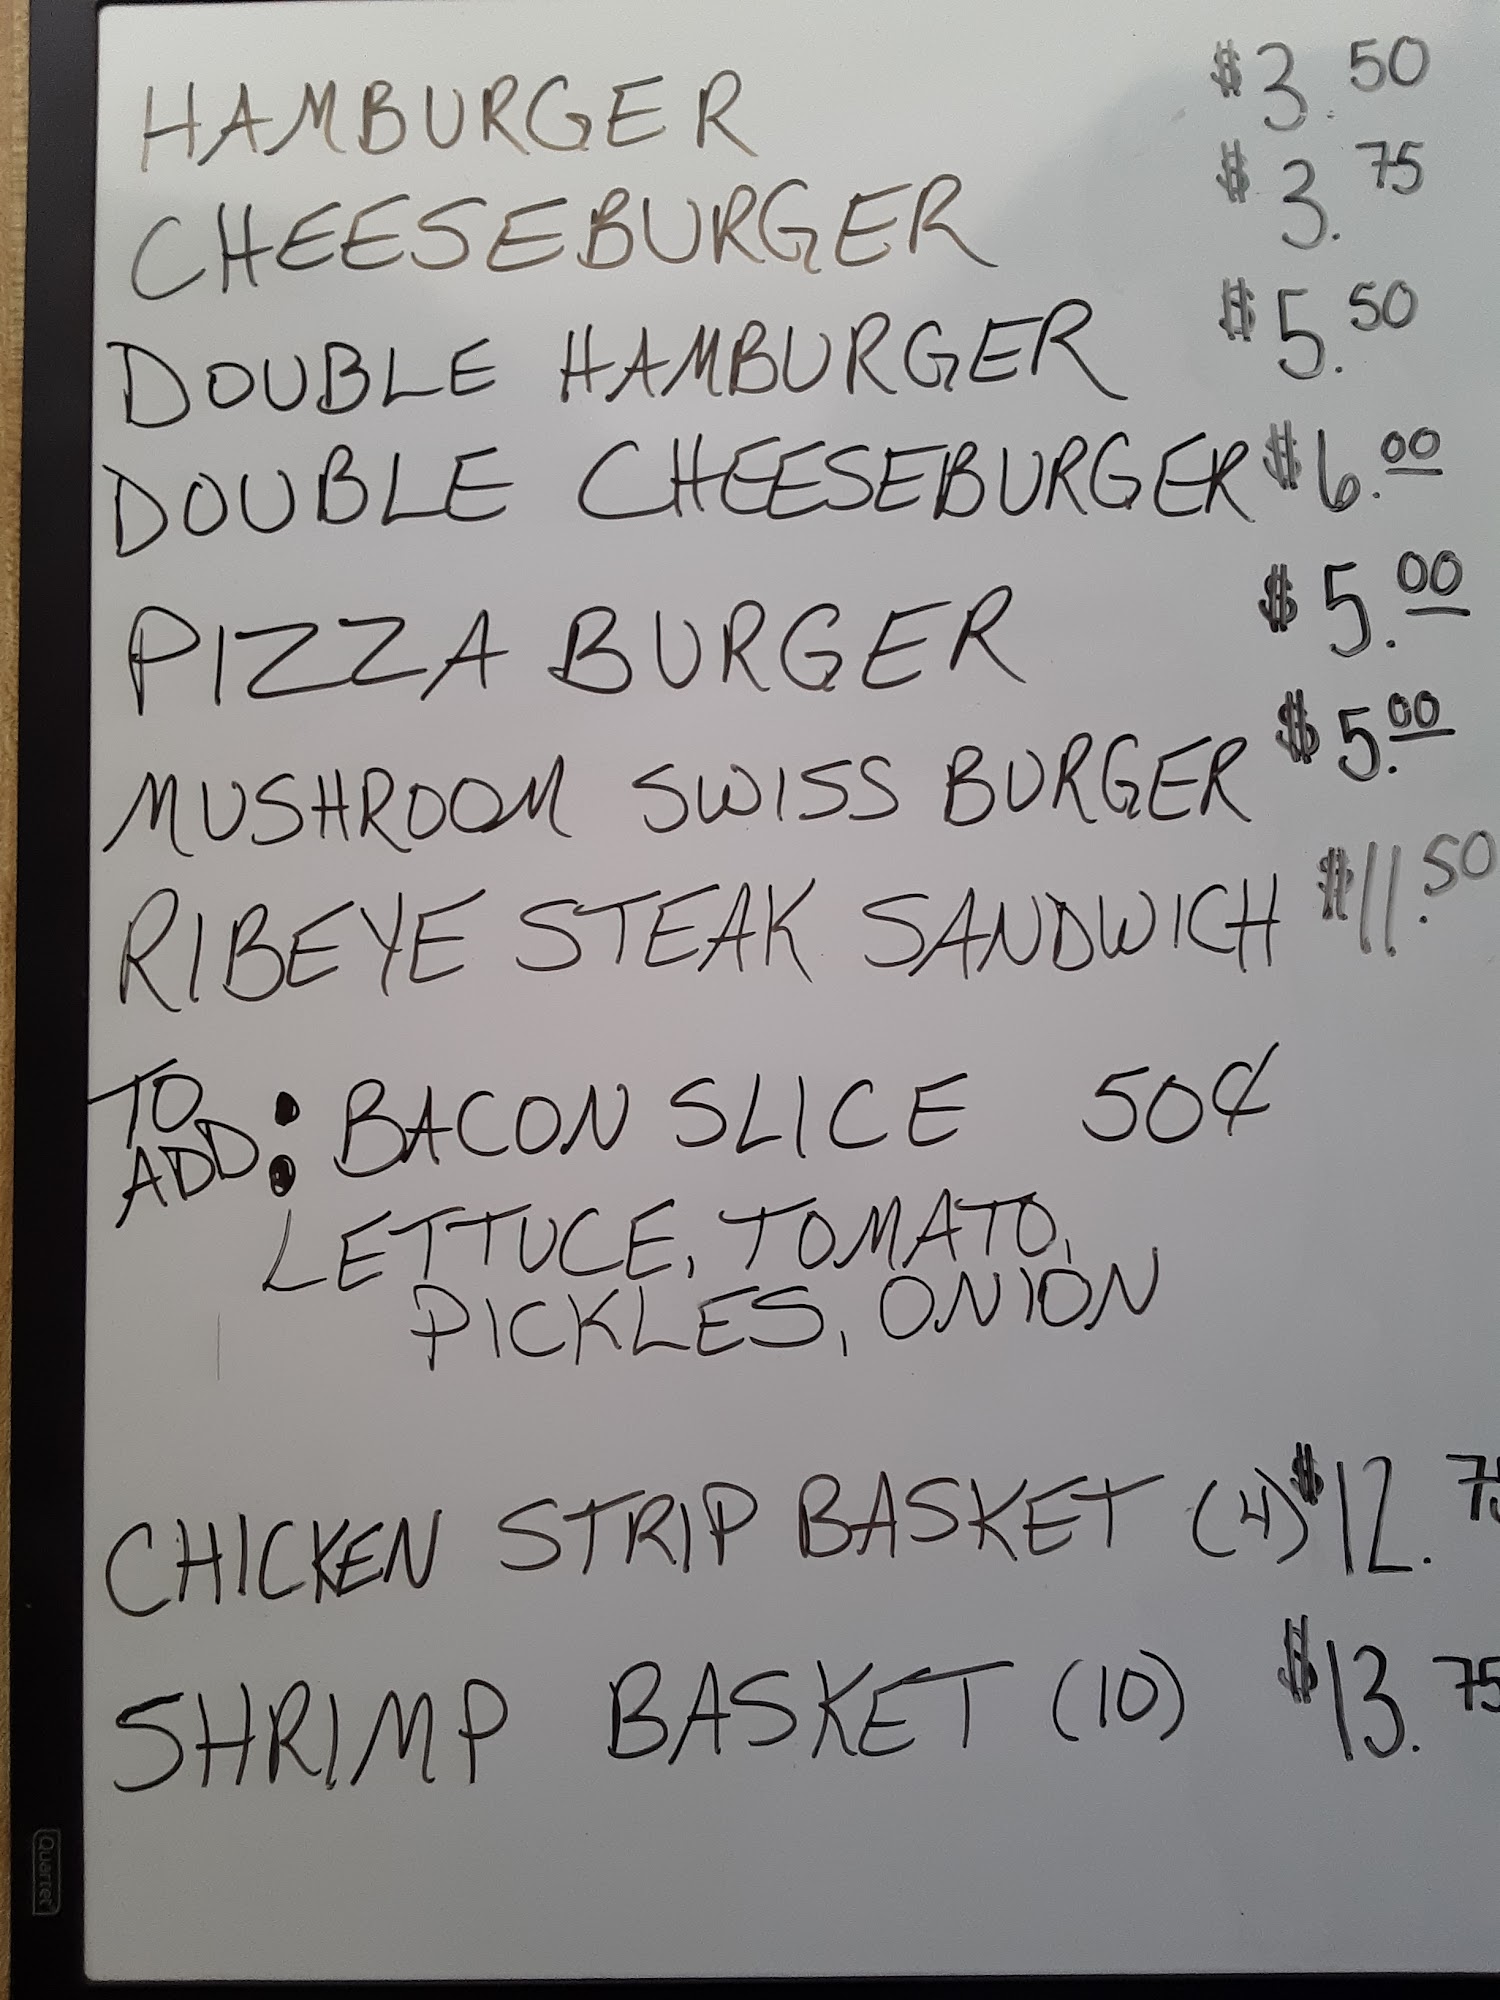 HAMBURGER $3.50
CHEESEBURGER $3.75
DOUBLE HAMBURGER $5.50
DOUBLE CHEESEBURGER $6.00
PIZZA BURGER $5.00
MUSHROOM SWISS BURGER $5.00
RIBEYE STEAK SANDWICH $11.50
TO ADD: BACON SLICE 50¢
LETTUCE, TOMATO,
PICKLES, ONION
CHICKEN STRIP BASKET (4) $12.75
SHRIMP BASKET (10) $13.75
Quartet